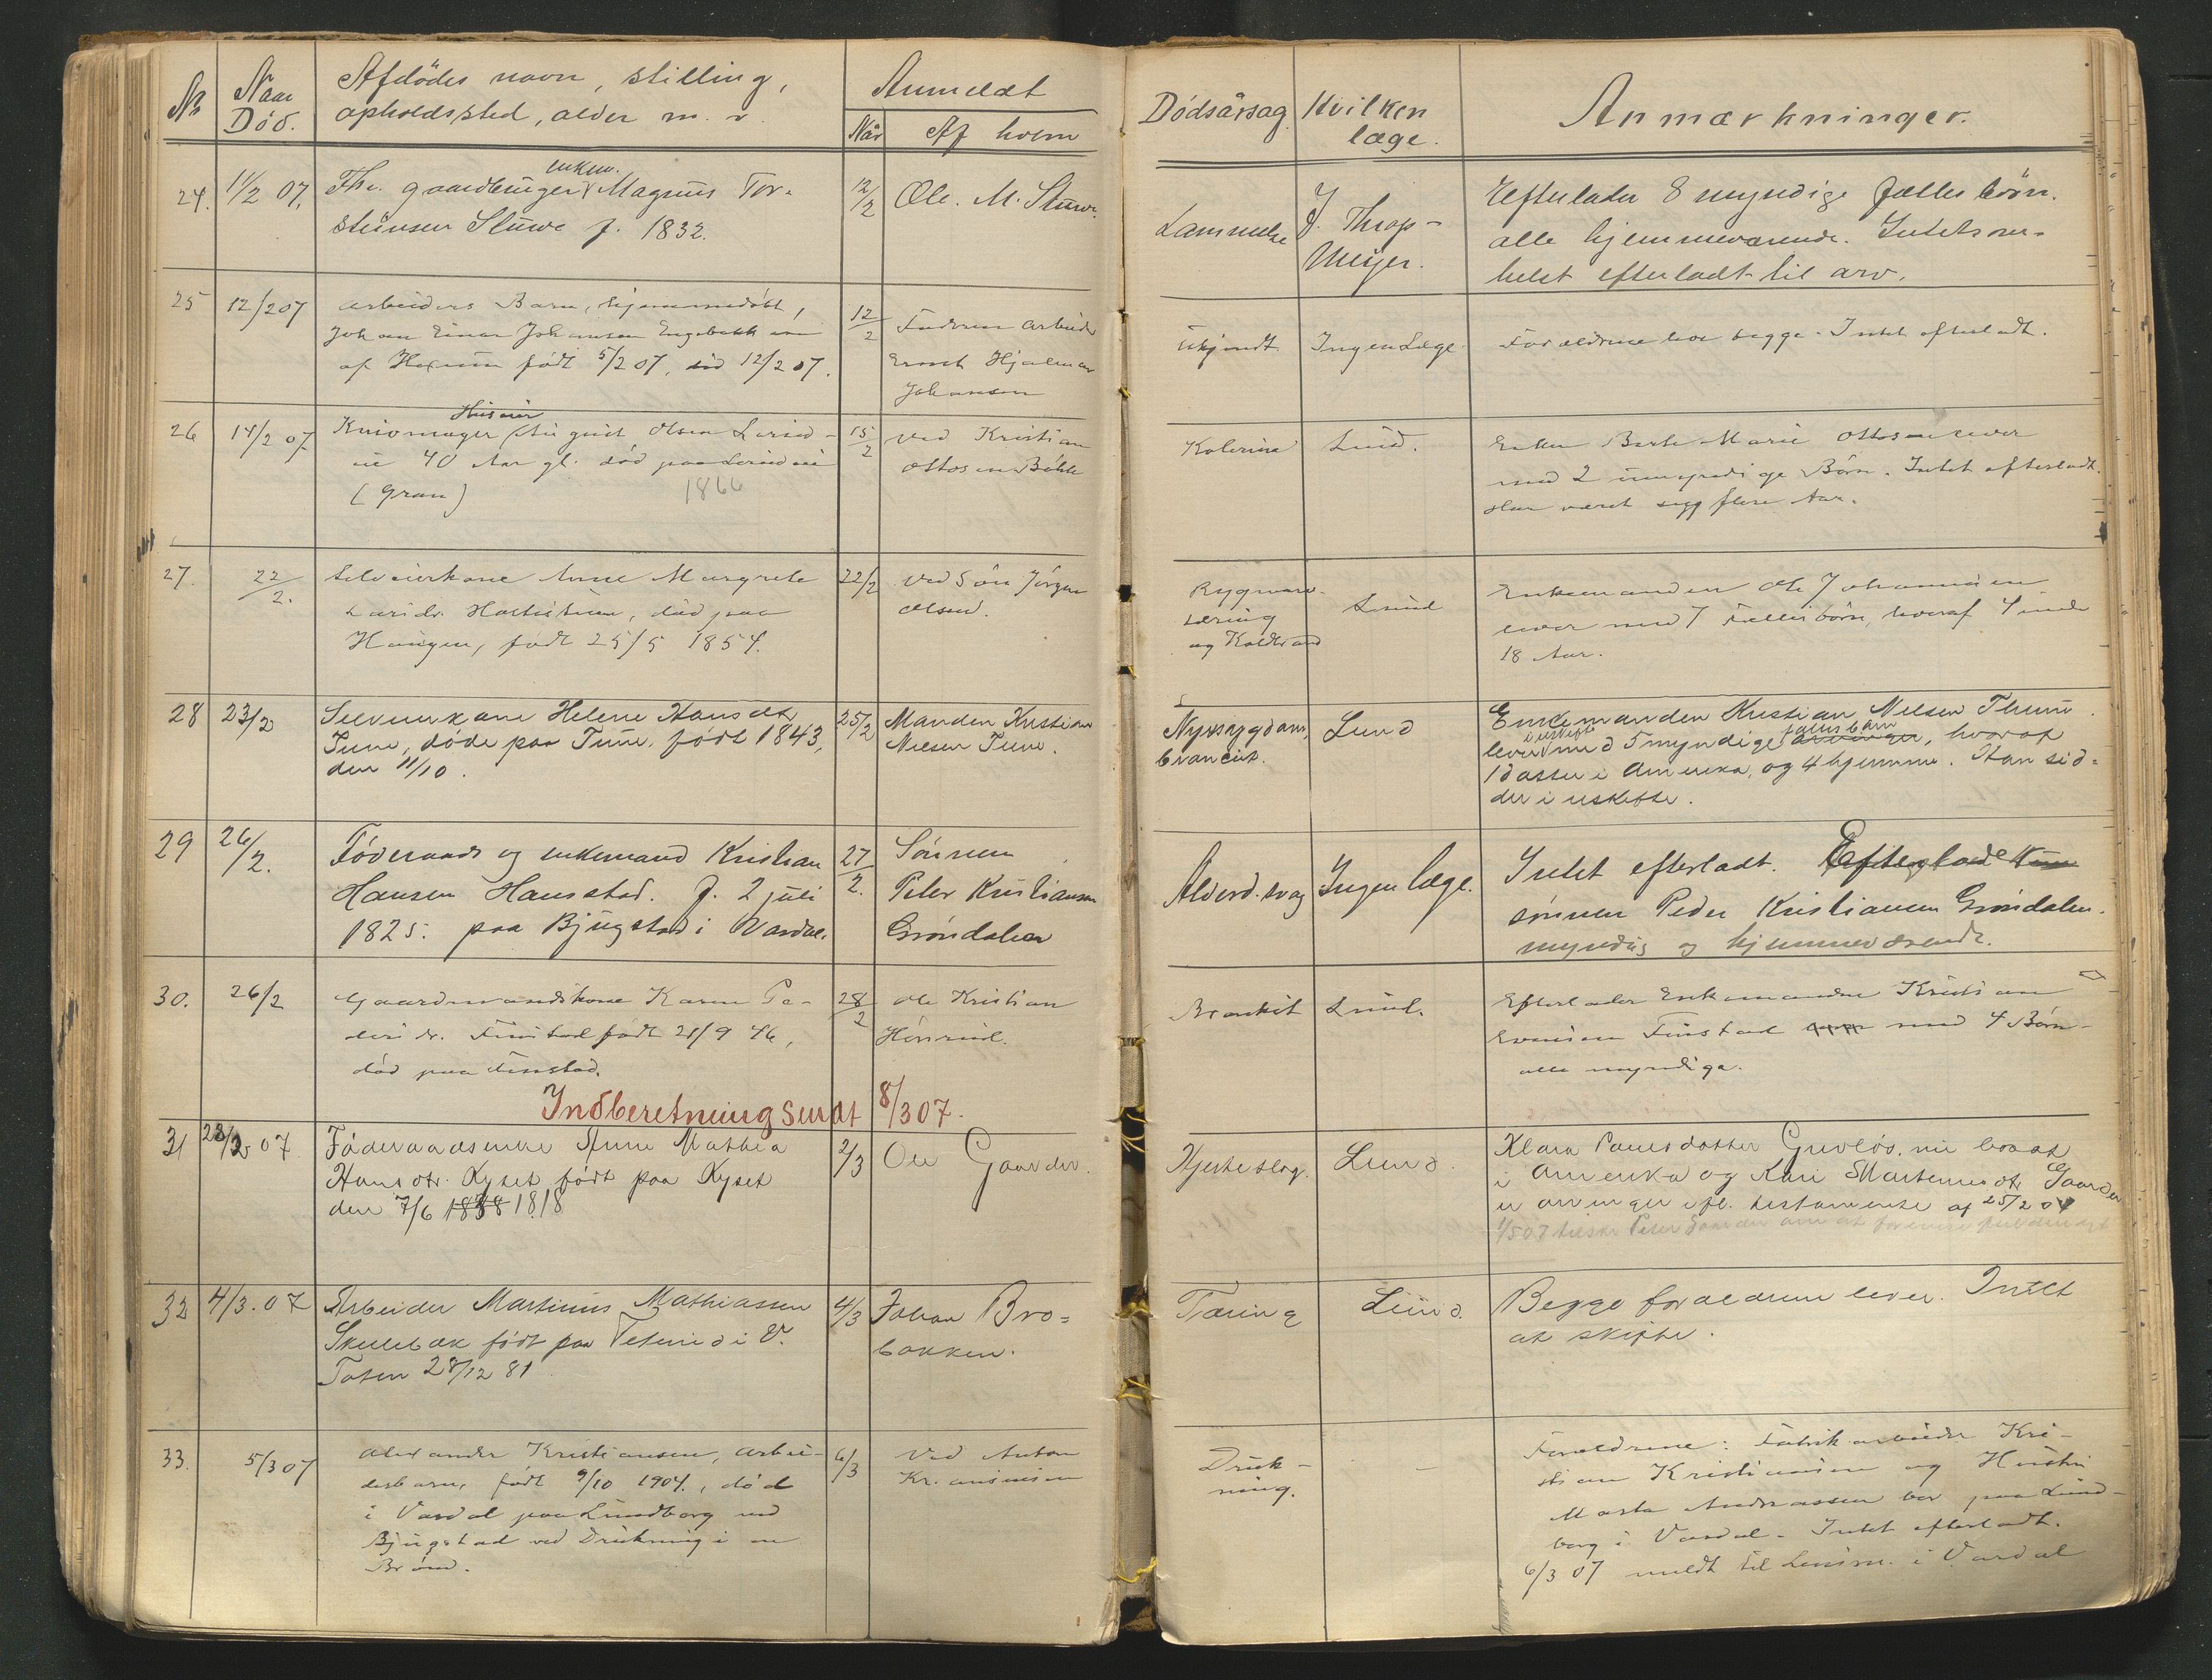 No
Naar
Død.
Afdødes navn, stilling,
opholdssted, alder m. v.
Anmeldt
Når
Af hvem
Dødsårsag.
Hvilken
læge.
Anmærkninger.
24.
11/2 07.
Fhv. gaardbruger enkem. Magnus Tor-
steinsen Stuwe f. 1832.
12/2
Ole. M. Stuwe.
Lammelse
J. Throp-
Meijer.
Efterlader 8 myndige fællesbörn.
alle hjemmeværende. Intetsom-
helst efterladt til arv.
25
12/2 07
Arbeiders Barn, hjemmedøbt,
Johan Einar Johansen Engebakk
af født 5/2 07, død 12/2 07.
12/2
Faderen Arbeider
Ernst Hjalmar
Johansen
Ukjendt
Ingen Læge.
Forældrene leve begge. Intet efterladt.
26
14/2 07.
Huseier
Knivmager August Olsen
40 Aar gl. død paa
(Gran) 1866
15/2
ved Kristian
Ottosen
Lund.
Enken Berte Marie Ottosen lever
med 2 umyndige Børn. Intet efterladt.
Har været syg flere Aar.
27.
22/2.
Selveierkone Anne Margrete
Larsdr. død paa
Haugen, født 25/5 1854.
22/2
ved Søn Jørgen
Olsen.
Rygmarv-
tæring
og Koldbrand
Lund
Enkemanden Ole Johannesen
lever med 7 Fællesbørn, hvoraf 4 under
18 Aar.
28
23/2
Selveierkone Helene Hansdtr
Tune, døde paa Tune, født 1843,
den 11/10.
25/2
Manden Kristian
Nielsen Tune.
Nyresygdom,
broncit.
Lund
Enkemanden Kristian Nielsen Thune
lever i uskifte med 5 myndige fællesbarn arvinger, hvoraf
1 datter i Amerika, og 4 hjemme. Han sid-
der i uskifte.
29
26/2.
Föderaads og enkemand Kristian
Hansen Hansstad. f. 2 juli
1825. paa Bjugstad i Vardal.
27/2.
Sönnen
Peter Kristiansen
Gröndalen
Alderd. svag
Ingen læge.
Intet efterladt. Efterlade Kun
sønnen Peder Kristiansen Gröndalen.
myndig og hjemmeværende.
30.
26/2
Gaardmandskone Karen Pe-
dersdr. Finstad født 21/9 46,
død paa Finstad.
28/2
Ole Kristian
Hönsrud.
Bronkit
Lund.
Efterlader Enkemanden Kristian
Evensen Finstad med 4 Børn
alle myndige.
Indberetning sendt 8/3 07.
31
28/2 07
Föderaadsenke Anne Mathea
Hansdtr. Kyset født paa Kyset
den 7/6 1838 1818
2/3
Ole Gaarder.
Hjerteslag.
Lund.
Klara Paulsdatter Grevløs, nu bosat
i Amerika og Kari Martinusdtr Gaarder
er arvinger efl. testamente af 25/2 04
32
4/3. 07
Arbeider Martinus Mathiassen
Skullebæk født paa i V.
Toten 28/12 81
4/3
Johan Bro-
bakken.
Tæring
Lund.
Begge forældrene lever. Intet
at skifte.
33.
5/3 07
Alexander Kristiansen, arbei-
derbarn, født 9/10 1904., død
i Vardal paa Lundborg ved
Bjugstad ved Drukning i en
Brønd.
6/3
Ved Anton
Kr. ansensen
Druk-
ning.
-
Forældrene: Fabrikarbeider Kri-
stian Kristiansen og Hustru
Marta Andreassen bor paa Lund-
borg i Vardal. Intet efterladt.
6/3 07 meldt til Lensm. i Vardal